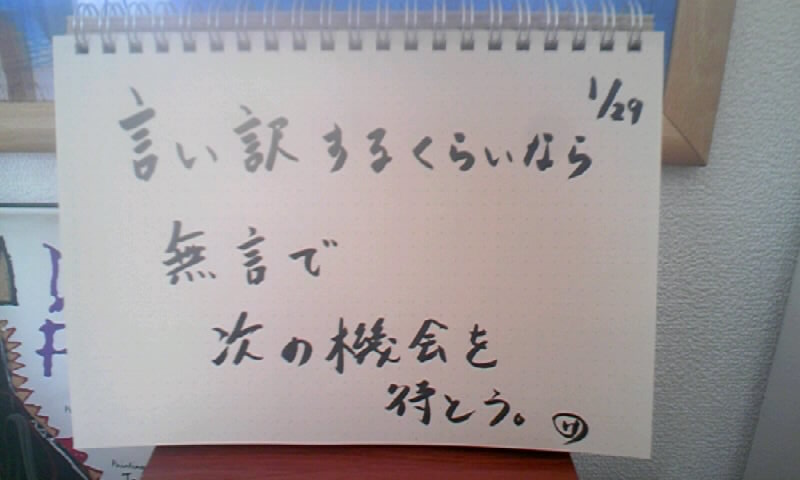 1/29
言い訳するくらいなら
無言で
次の機会を
待とう。 け